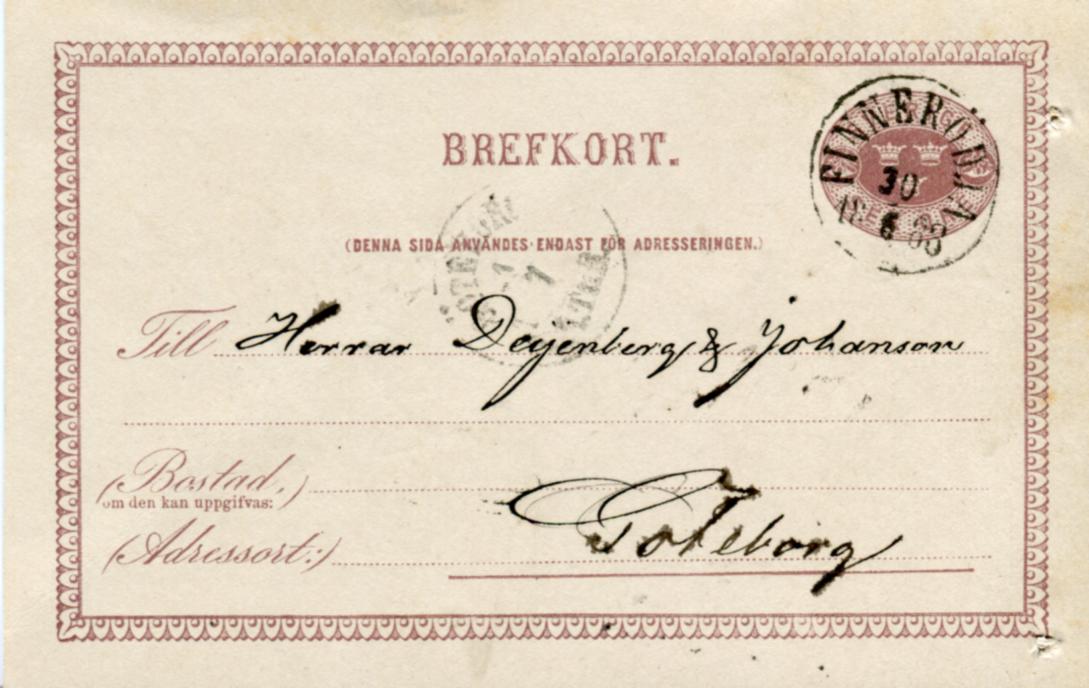 BREFKORT.
FINNERÖDJA
30
6
(DENNA SIDA ANVÄNDES ENDAST FÖR ADRESSERINGEN.)
1
7
Till Herrar Degenberg & Johanson
(Bostad,)
om den kan uppgifvas:
(Adressort:) Göteborg